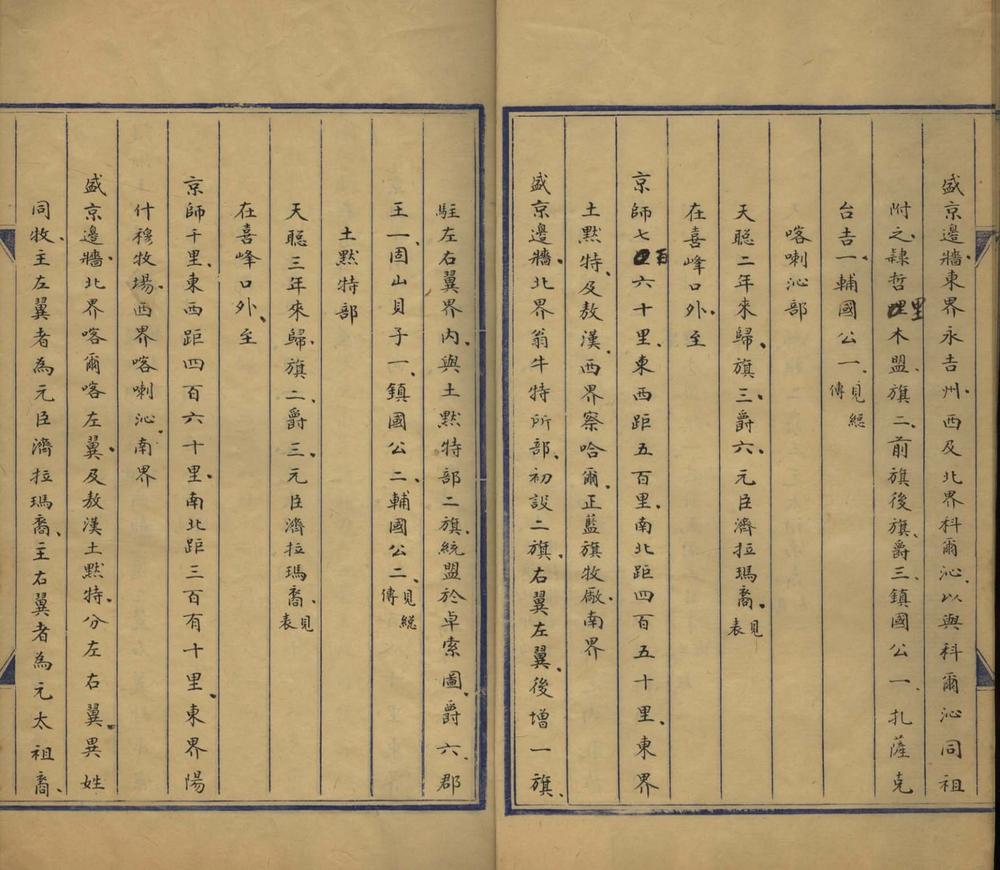 盛京邊牆東界永吉州西及北界科爾沁以與科爾沁同祖
附之隸哲里木盟旗二前旗後旗爵三鎮國公一扎薩克
台吉一輔國公一見總傳
喀喇沁部
天聰二年來歸旗三爵六元臣濟拉瑪裔見表
在喜峰口外至
京師七百六十里東西距五百里南北距四百五十里東界
土默特及敖漢西界察哈爾正藍旗牧廠南界
盛京邊牆北界翁牛特所部初設二旗右翼左翼後增一旗
駐左右翼界內與土默特部二旗統盟於卓索圖爵六郡
王一固山貝子一鎮國公二輔國公二見總傳
土默特部
天聰三年來歸旗二爵三元臣濟拉瑪裔見表
在喜峰口外至
京師千里東西距四百六十里南北距三百有十里東界陽
什穆牧場西界喀喇沁南界
盛京邊牆北界喀爾喀左翼及敖漢土默特分左右翼異姓
同牧主左翼者為元臣濟拉瑪裔主右翼者為元太祖裔